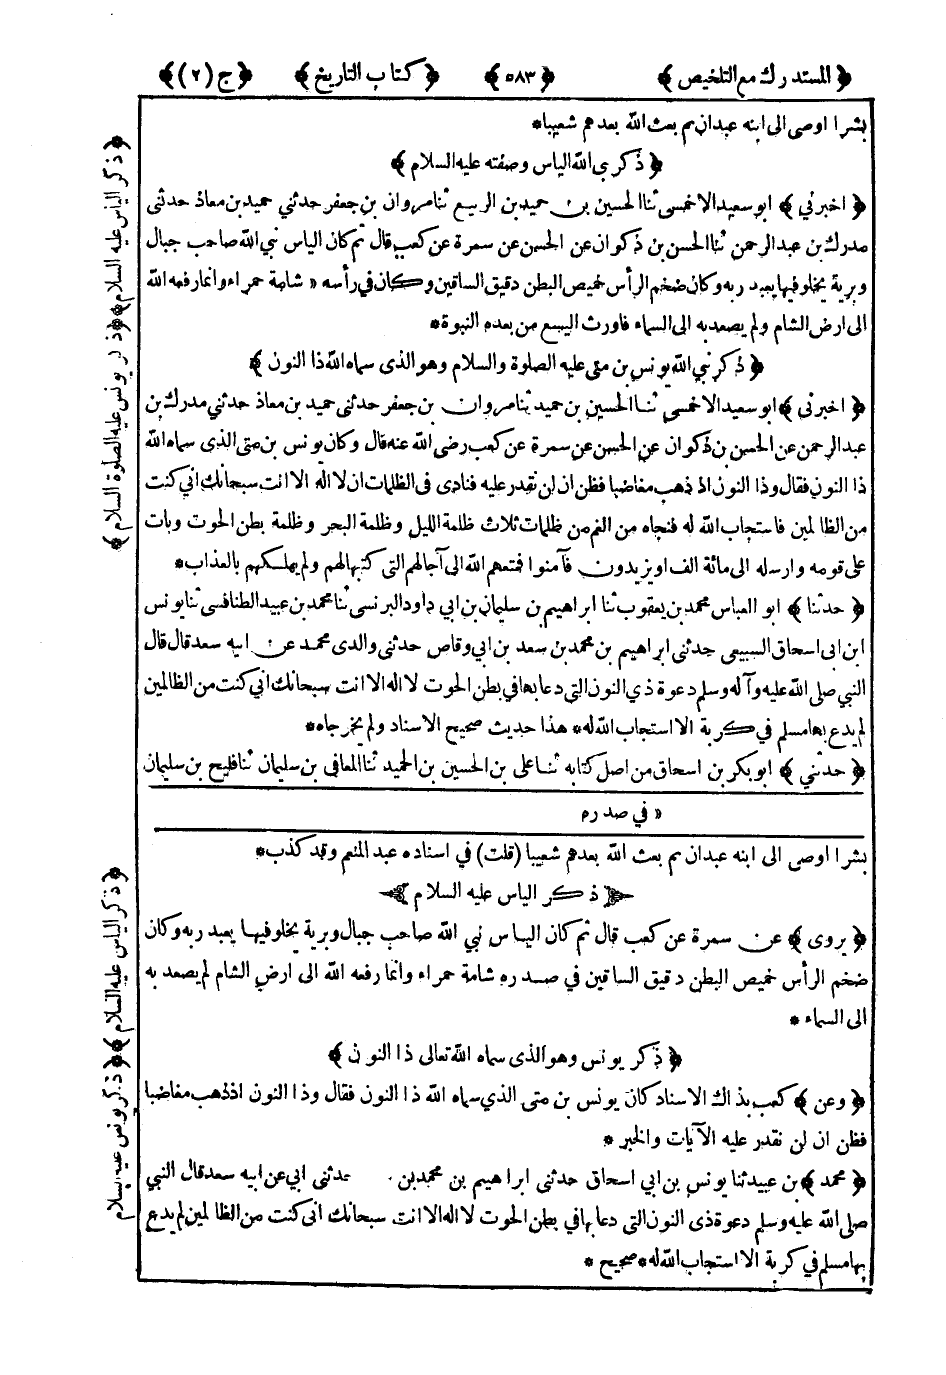 ﴿ المستدرك مع التلخيص ﴾ ﴿ ٥٨٣ ﴾ ﴿ كتاب التاريخ ﴾ ﴿ ج (٢) ﴾
بشرا اوصى الى ابنه عبدان ثم بعث الله بعدهم شعيبا*
﴿ ذكر نبي الله الياس وصفته عليه السلام ﴾
﴿ اخبرني ﴾ ابو سعيد الاخمسى ثنا الحسين بن حميد بن الربيع ثنا مروان بن جعفر حدثني حميد بن معاذ حدثنى
مدرك بن عبد الرحمن ثنا الحسن بن ذكوان عن الحسن عن سمرة عن كعب قال ثم كان الياس نبي الله صاحب جبال
وبرية يخلو فيها يعبد ربه وكان ضخم الرأس خميص البطن دقيق الساقين وكان في رأسه « شامة حمراء وانما رفعه الله
الى ارض الشام ولم يصعد به الى السماء فاورث اليسع من بعده النبوة*
﴿ ذكر نبي الله يونس بن متى عليه الصلوة والسلام وهو الذى سماه الله ذا النون ﴾
﴿ اخبرنى ﴾ ابو سعيد الاخمسى ثنا الحسين بن حميد ثنا مروان بن جعفر حدثنى حميد بن معاذ حدثني مدرك بن
عبد الرحمن عن الحسن بن ذكوان عن الحسن عن سمرة عن كعب رضى الله عنه قال وكان يونس بن متى الذى سماه الله
ذا النون فقال وذا النون اذ ذهب مغاضبا فظن ان لن نقدر عليه فنادى فى الظلمات ان لا اله الا انت سبحانك انى كنت
من الظالمين فاستجاب الله له فنجاه من الغم من ظلمات ثلاث ظلمة الليل وظلمة البحر وظلمة بطن الحوت وبات
على قومه وارسله الى مائة الف او يزيدون فآمنوا فمتعهم الله الى آجالهم التى كتبها لهم ولم يهلكهم بالعذاب*
﴿ حدثنا ﴾ ابو العباس محمد بن يعقوب ثنا ابراهيم بن سليمان بن ابي داود البرنسى ثنا محمد بن عبيد الطنافسى ثنا يونس
ابن ابى اسحاق السبيعى حدثنى ابراهيم بن محمد بن سعد بن ابي وقاص حدثنى والدى محمد عن ابيه سعد قال قال
النبي صلى الله عليه وآله وسلم دعوة ذي النون التي دعا بها في بطن الحوت لا اله الا انت سبحانك اني كنت من الظالمين
لم يدع بها مسلم في كربة الا استجاب الله له* هذا حديث صحيح الاسناد ولم يخرجاه*
﴿ حدثني ﴾ ابو بكر بن اسحاق من اصل كتابه ثنا على بن الحسين بن الحميد ثنا المعافى بن سليمان ثنا فليح بن سليمان
« في صدره
بشرا اوصى الى ابنه عبدان ثم بعث الله بعدهم شعيبا (قلت) في اسناده عبد المنعم وقد كذب*
ذكر الياس عليه السلام
﴿ يروى ﴾ عن سمرة عن كعب قال ثم كان الياس نبي الله صاحب جبال وبرية يخلو فيها يعبد ربه وكان
ضخم الرأس خميص البطن دقيق الساقين في صدره شامة حمراء وانما رفعه الله الى ارض الشام لم يصعد به
الى السماء *
﴿ ذكر يونس وهو الذى سماه الله تعالى ذا النون ﴾
﴿ وعن ﴾ كعب بذاك الاسناد كان يونس بن متى الذي سماه الله ذا النون فقال وذا النون اذ ذهب مغاضبا
فظن ان لن نقدر عليه الآيات والخبر *
﴿ محمد ﴾ بن عبيد ثنا يونس بن ابي اسحاق حدثنى ابراهيم بن محمد بن حدثنى ابي عن ابيه سعد قال النبي
صلى الله عليه وسلم دعوة ذى النون التى دعا بها في بطن الحوت لا اله الا انت سبحانك انى كنت من الظالمين لم يدع
بها مسلم في كربة الا استجاب الله له* صحيح *
﴿ ذكر الياس عليه السلام ﴾ ﴿ ذكر يونس عليه الصلوة السلام ﴾
﴿ ذكر الياس عليه السلام ﴾ ﴿ ذكر يونس عليه السلام